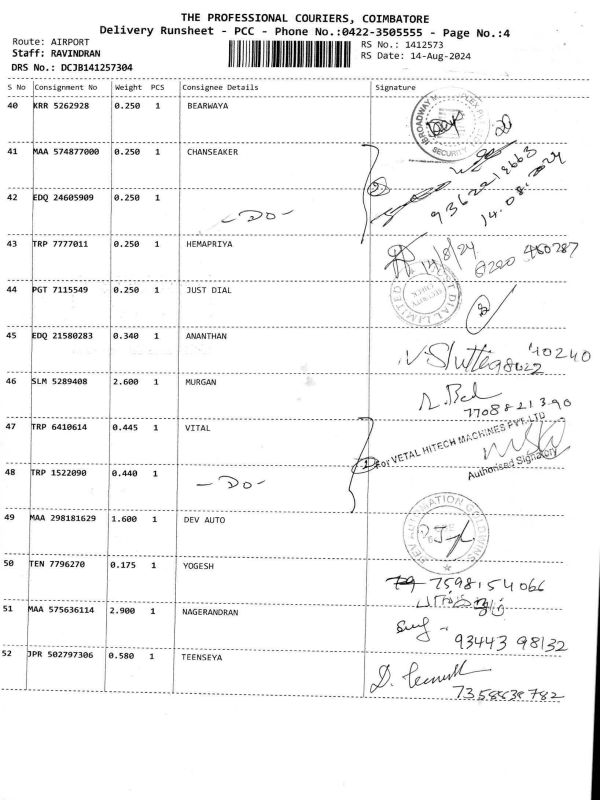 THE PROFESSIONAL COURIERS, COIMBATORE
Delivery Runsheet - PCC - Phone No.:0422-3505555 - Page No.:4
Route: AIRPORT
RS No.: 1412573
Staff: RAVINDRAN
RS Date: 14-Aug-2024
DRS No.: DCJB141257304
S No Consignment No Weight PCS Consignee Details Signature
40 KRR 5262928 0.250 1 BEARWAYA
BROADWAY
SECURITY
41 MAA 574877000 0.250 1 CHANSEAKER
2
9362213663
14.08.2024
42 EDQ 24605909 0.250 1
-Do-
43 TRP 7777011 0.250 1 HEMAPRIYA
14/8/24
44 PGT 7115549 0.250 1 JUST DIAL
DIAL LIMITED
SECURITY
CHECK
45 EDQ 21580283 0.340 1 ANANTHAN
46 SLM 5289408 2.600 1 MURGAN
7708821390
47 TRP 6410614 0.445 1 VITAL
For VETAL HITECH MACHINES PVT.LTD
Authorised Signatory
48 TRP 1522090 0.440 1
-Do-
49 MAA 298181629 1.600 1 DEV AUTO
DEV AUTOMATION GOLDWINS
50 TEN 7796270 0.175 1 YOGESH
7598154066
51 MAA 575636114 2.900 1 NAGERANDRAN
93443 98132
52 JPR 502797306 0.580 1 TEENSEYA
7358838782